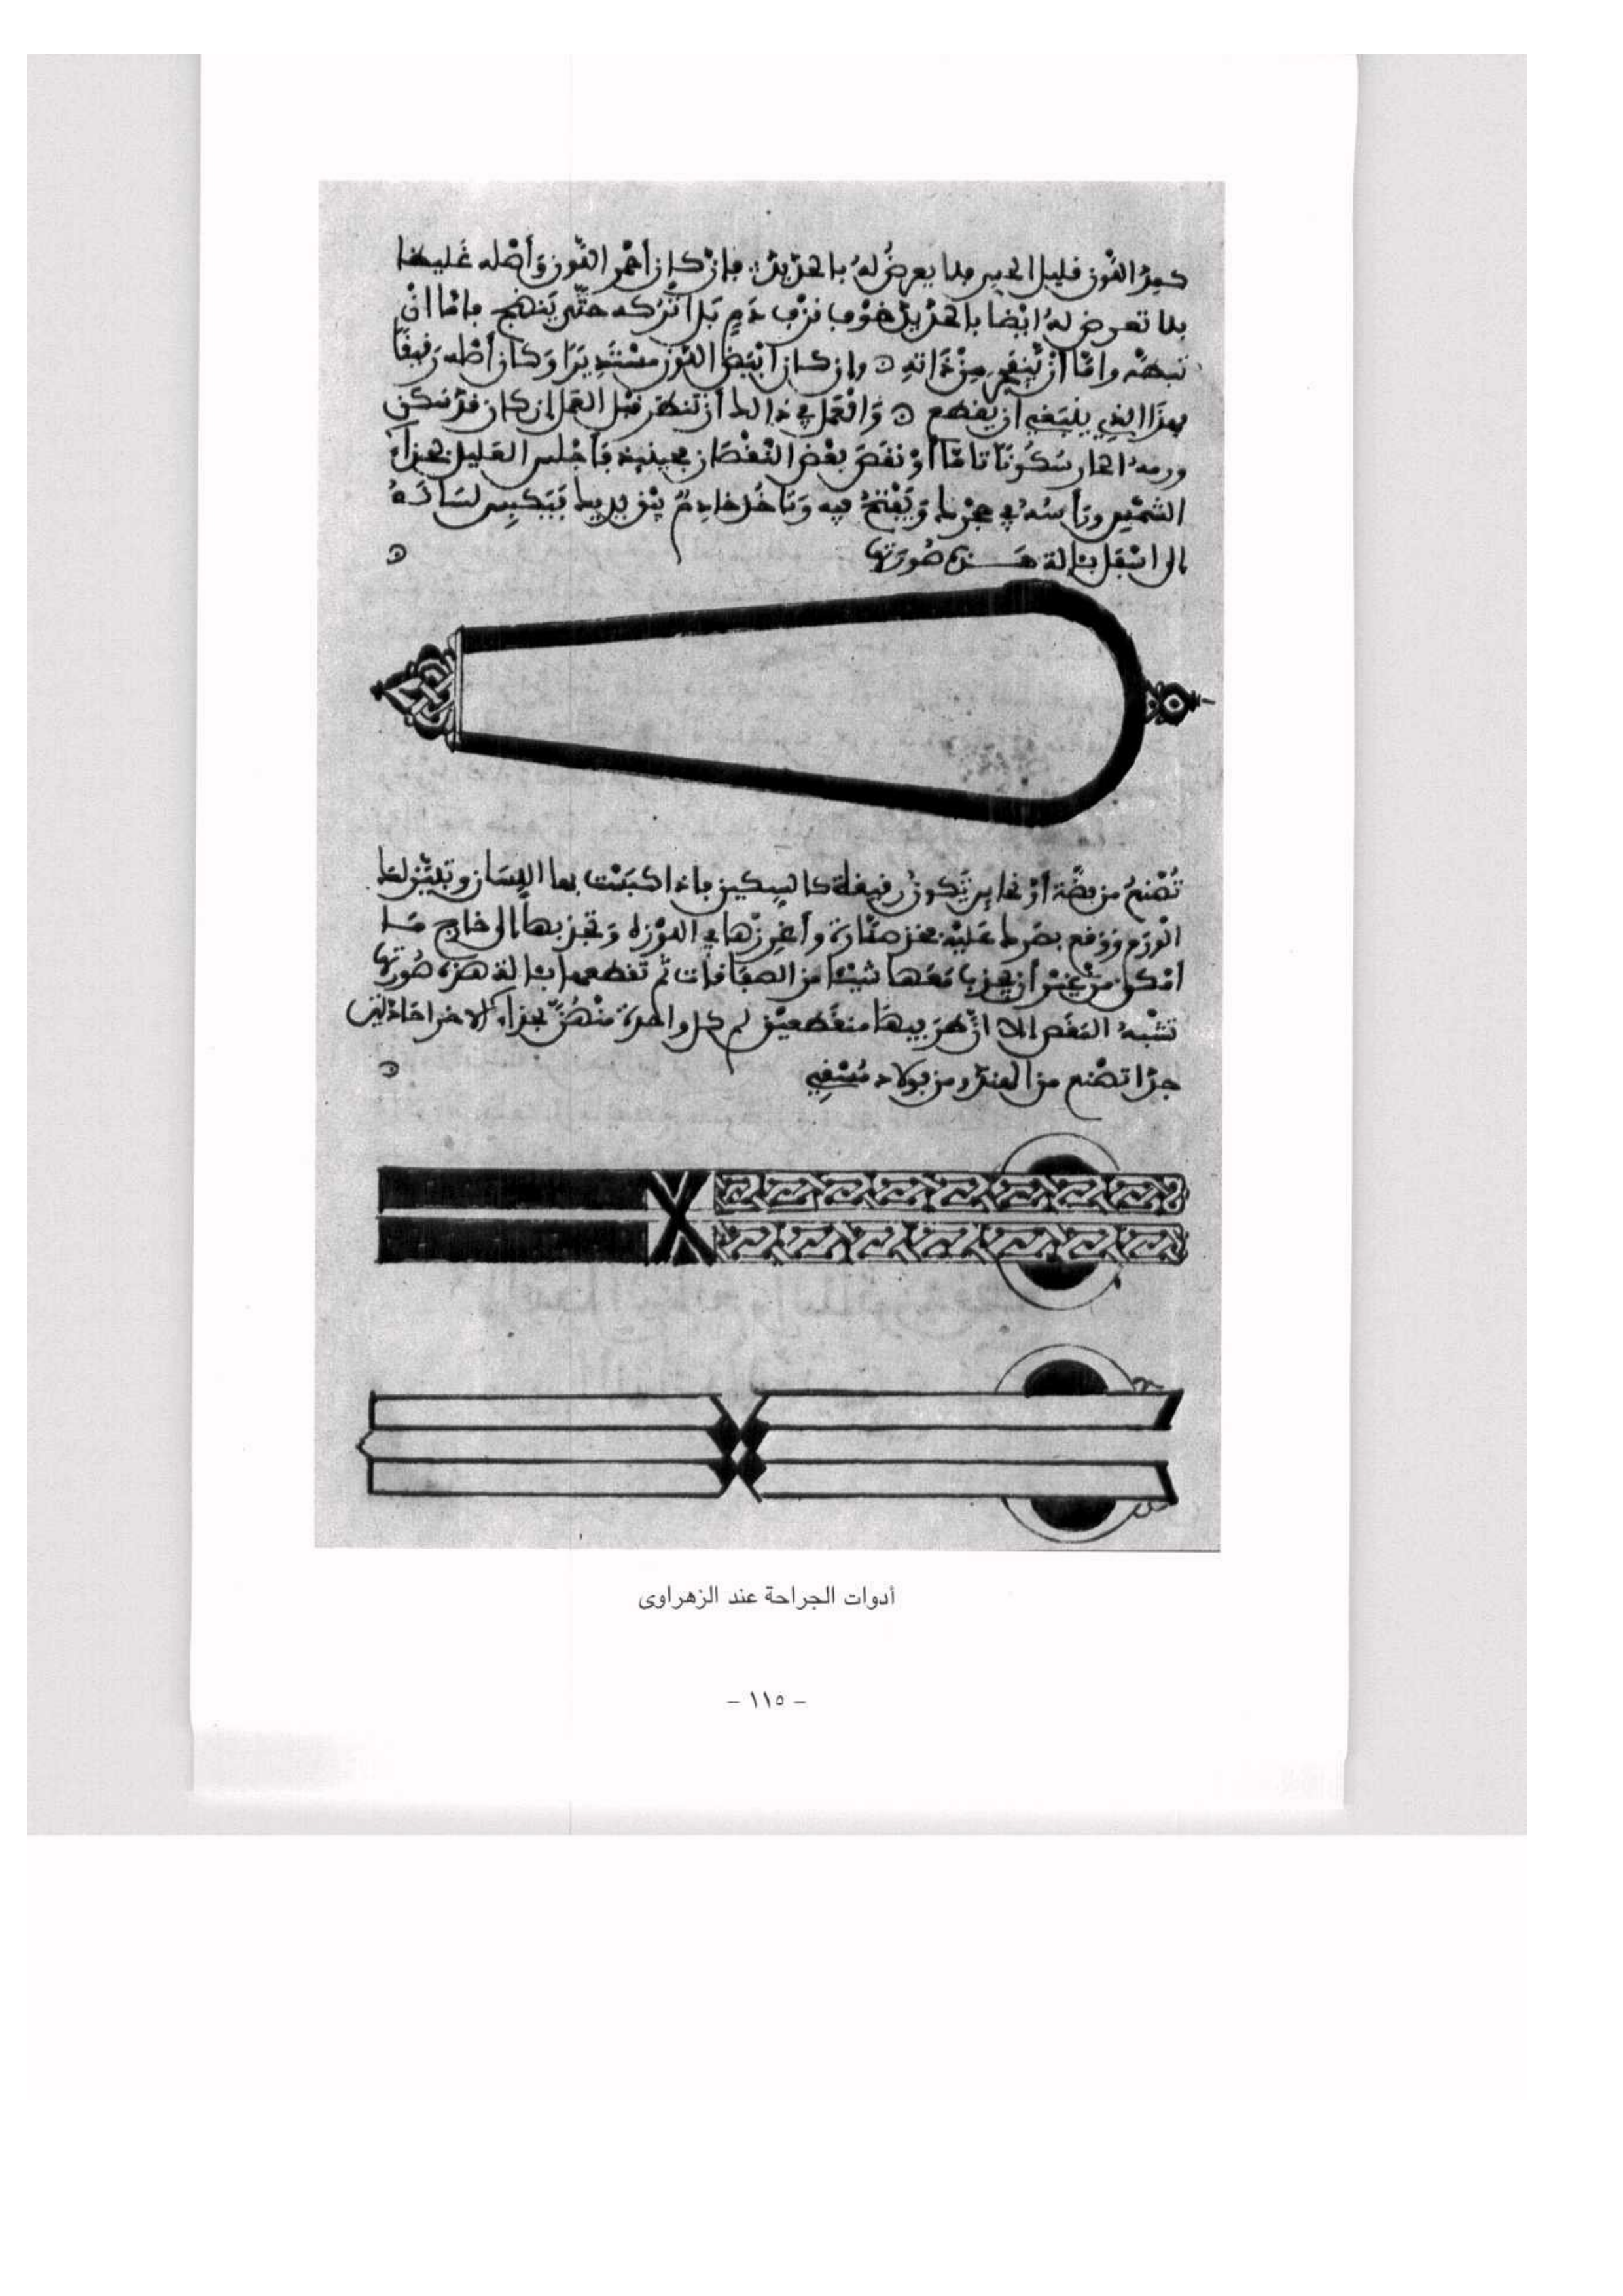 كمد اللون قليل الحس فلا يعرض له بالحديد فإن كان أحمر اللون وأصله غليظا
فلا تعرض له أيضا بالحديد خوف نزف دم بل اتركه حتى ينضج فإما ان
تبطه وإما أن ينفجر من ذاته وإن كان أبيض اللون مستديرا وكان أصله رقيقا
فهذا الذي ينبغي أن يقطع والعمل في ذالك أن تنظر قبل العمل إن كان قد سكن
ورمه الحار سكونا تاما أو نقص بعض النقصان فأجلس العليل بحذاء
الشمس ورأسه في حجرك ويفتح فيه وتأخذ خادم بين يديك فيكبس لسانه
الى اسفل بئالة هذه صورتها
تصنع من فضة أو نحاس تكون رقيقة كالسكين فإذا كبست بها اللسان وتبين لك
الورم ووقع بصرك عليه فخذ صنارة وأغرزها في اللوزة وتجذبها الى خارج ما
أمكن من غير أن تجذب معها شيئا من الصفاقات ثم تقطعها بئالة هذه صورتها
تشبه المقص الا أن طرفيها منعطفين فم كل واحدة منهن بحذاء الاخرا حادتين
جدا تصنع من الهند ومن فولاد مسقي
أدوات الجراحة عند الزهراوى
– ١١٥ –